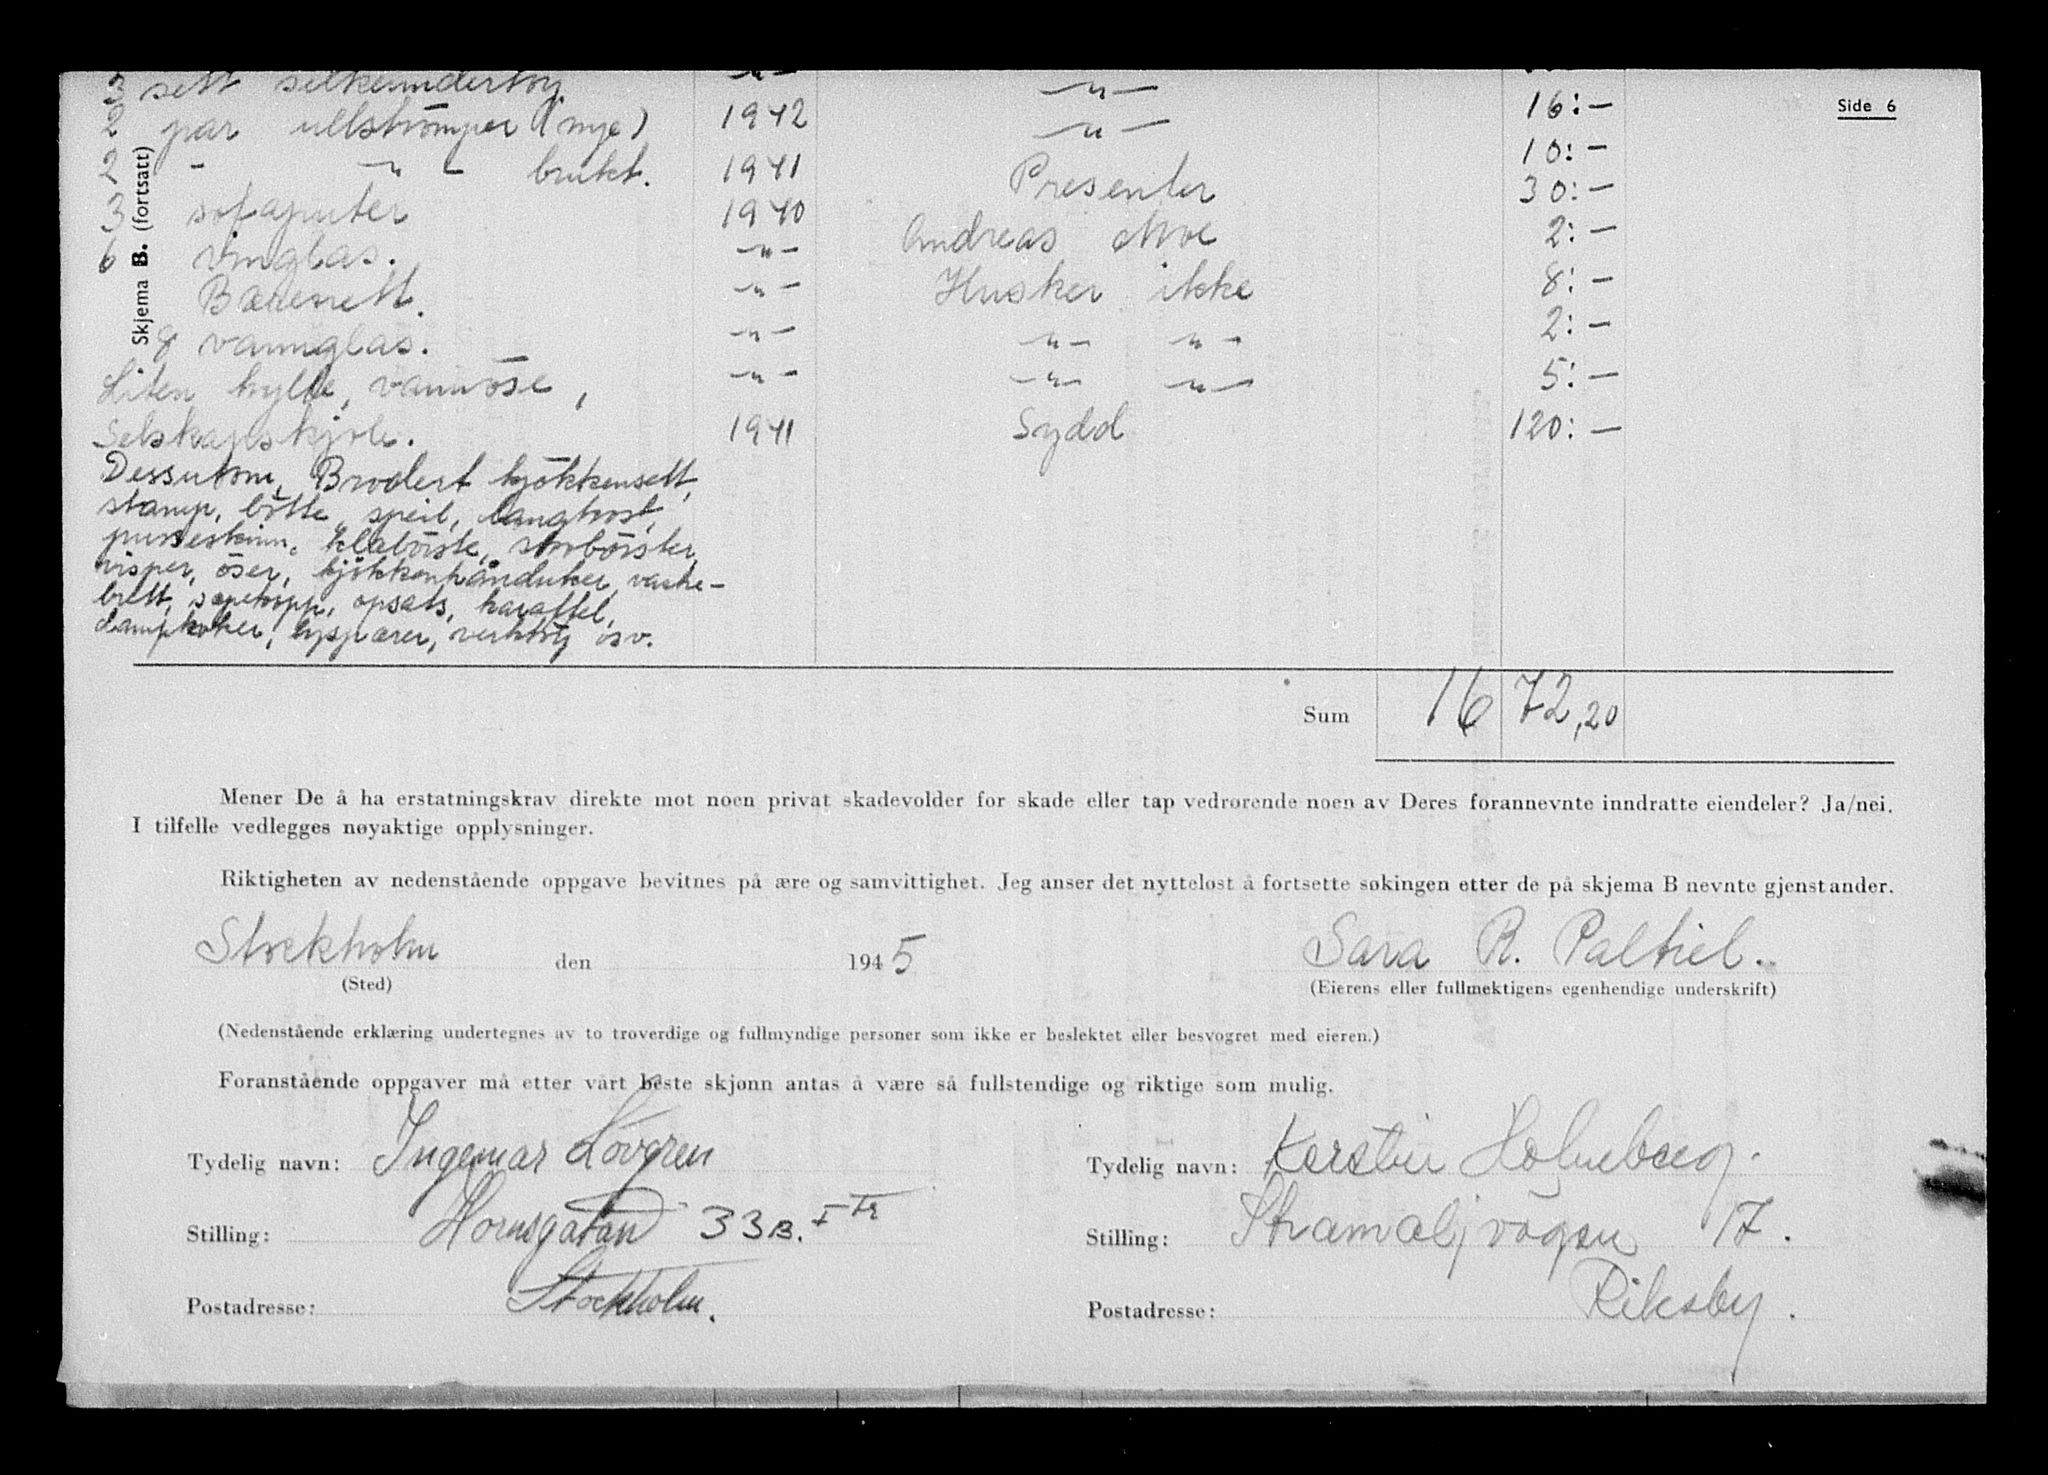 Side 6
Skjema B. (fortsatt)
3 sett silkeundertøy -"- -"-
2 par ullströmper (nye) 1942 -"- 16:-
2 - -"- - brukt. 1941 Presenter 10:-
3 sofaputer 1940 30:-
6 vinglas. -"- Andreas Moe 2:-
-"- Husker ikke 8:-
8 vannglas. -"- -"- -"- 2:-
Liten hylle, vannöse, -"- -"- -"- 5:-
Selskapskjole. 1941 Sydd 120:-
Dessutom, Brodert kjökkensett,
stamp, bötte, speil, langkost,
pusseskinn, klebörste, skobörster,
visper, öser, kjökkenhånduker, vaske-
brett, sopekopp, opsats, karaffel,
dampkoker, lyspærer, verktöy osv.
Sum 1672,20
Mener De å ha erstatningskrav direkte mot noen privat skadevolder for skade eller tap vedrørende noen av Deres forannevnte inndratte eiendeler? Ja/nei.
I tilfelle vedlegges nøyaktige opplysninger.
Riktigheten av nedenstående oppgave bevitnes på ære og samvittighet. Jeg anser det nytteløst å fortsette søkingen etter de på skjema B nevnte gjenstander.
Stockholm den 1945 Sara R. Paltiel.
(Sted) (Eierens eller fullmektigens egenhendige underskrift)
(Nedenstående erklæring undertegnes av to troverdige og fullmyndige personer som ikke er beslektet eller besvogret med eieren.)
Foranstående oppgaver må etter vårt beste skjønn antas å være så fullstendige og riktige som mulig.
Tydelig navn: Ingemar Lövgren Tydelig navn: Kerstin Holmberg.
Stilling: Hornsgatan 33 B. I tr Stilling: Stramaljvägen 17.
Postadresse: Stockholm. Postadresse: Riksby.